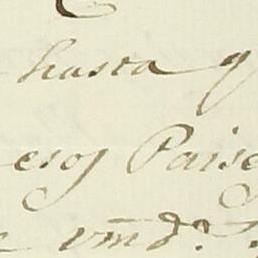 hasta q
esos Paise
vmd.